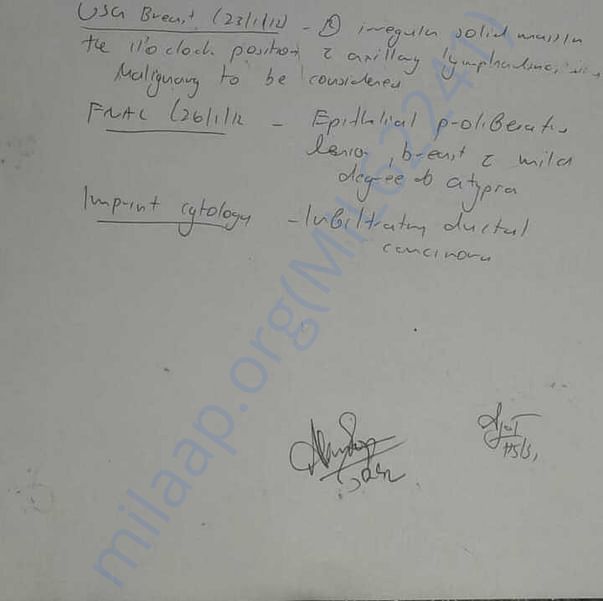 USG Breast (23/1/12) - Ⓡ irregular solid mass in
the 11'o clock position c̄ axillary
Malignancy to be considered
FNAC (26/1/12 - Epithelial proliferative
lesion, breast c̄ mild
degree of atypia
Imprint cytology - Infiltrating ductal
carcinoma
milaap.org(MIL62241)